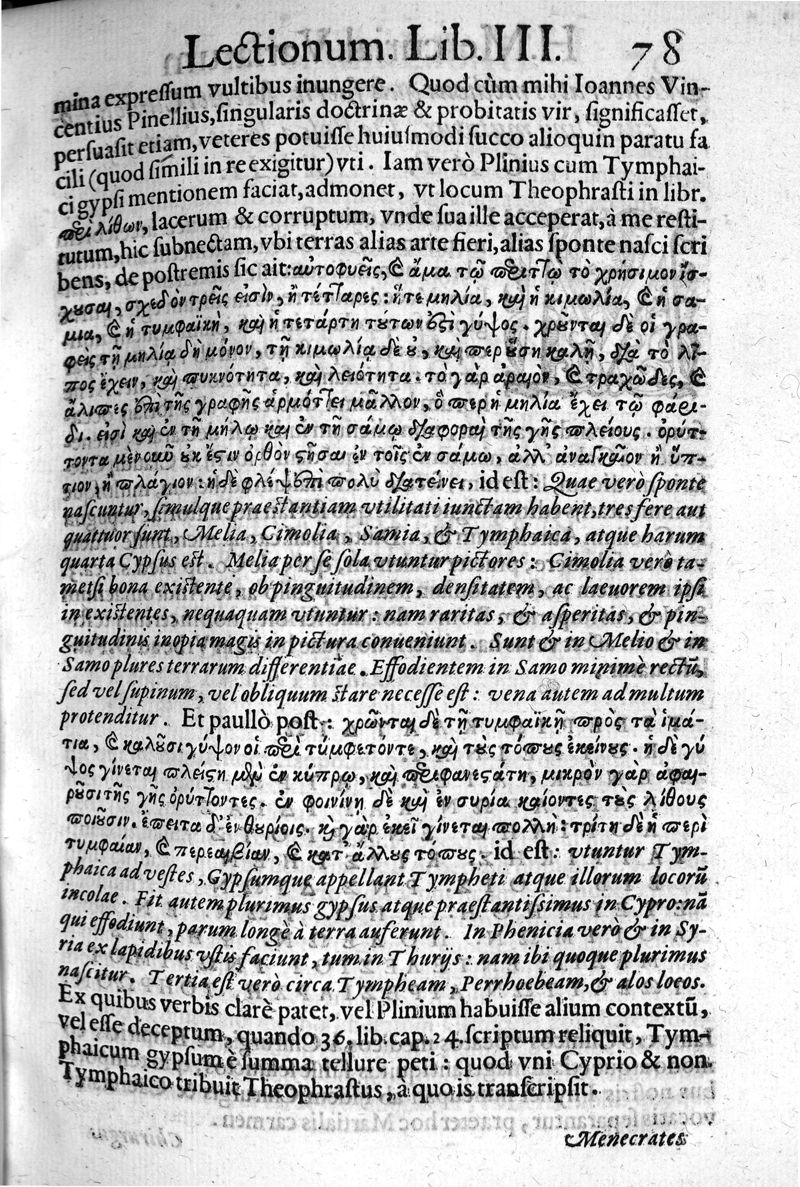 Lectionum. Lib. III. 78
mina expressum vultibus inungere. Quod cùm mihi Ioannes Vin-
centius Pinellius, singularis doctrinæ & probitatis vir, significasset,
persuasit etiam, veteres potuisse huiusmodi succo alioquin paratu fa
cili (quod simili in re exigitur) vti. Iam verò Plinius cum Tymphai-
ci gypsi mentionem faciat, admonet, vt locum Theophrasti in libr.
περὶ λίθων, lacerum & corruptum, vnde sua ille acceperat, à me resti-
tutum, hic subnectam, vbi terras alias arte fieri, alias sponte nasci scri
bens, de postremis sic ait: αὐτοφυεῖς, καὶ ἅμα τῷ περιττῷ τὸ χρήσιμον ἴσ-
χουσαι, σχεδὸν τρεῖς εἰσὶν, ἢ τέτταρες: ἥτε μηλία, καὶ ἡ κιμωλία, καὶ ἡ σα-
μια, καὶ ἡ τυμφαϊκὴ, καὶ ἡ τετάρτη τούτων ἐστὶ γύψος. χρῶνται δὲ οἱ γρα-
φεῖς τῇ μηλίᾳ δὴ μόνον, τῇ κιμωλίᾳ δὲ οὐ, καίπερ οὔσῃ καλῇ, διὰ τὸ λί-
πος ἔχειν, καὶ πυκνότητα, καὶ λειότητα. τὸ γὰρ ἀραιὸν, καὶ τραχῶδες, καὶ
ἀλιπὲς ἐπὶ τῆς γραφῆς ἁρμόττει μᾶλλον, ὅπερ ἡ μηλία ἔχει τῷ φάρι-
δι. εἰσὶ καὶ ἐν τῇ μήλῳ καὶ ἐν τῇ σάμῳ διαφοραὶ τῆς γῆς πλείους. ὀρύτ-
τοντα μὲν οὖν οὐκ ἔστιν ὀρθὸν στῆσαι ἐν τοῖς ἐν σάμῳ, ἀλλ' ἀναγκαῖον ἢ ὕπ-
τιον, ἢ πλάγιον: ἡ δὲ φλὲψ ἐπὶ πολὺ διατείνει, id est: Quae verò sponte
nascuntur, simulque praestantiam vtilitati iunctam habent, tres fere aut
quattuor sunt, Melia, Cimolia, Samia, & Tymphaica, atque harum
quarta Cypsus est. Melia per se sola vtuntur pictores: Cimolia vero ta-
metsi bona existente, ob pinguitudinem, densitatem, ac laeuorem ipsi
in existentes, nequaquam vtuntur: nam raritas, & asperitas, & pin-
guitudinis inopia magis in pictura conueniunt. Sunt & in Melio & in
Samo plures terrarum differentiae. Effodientem in Samo minimè rectū,
sed vel supinum, vel obliquum stare necesse est: vena autem ad multum
protenditur. Et paullò post: χρῶνται δὲ τῇ τυμφαϊκῇ πρὸς τὰ ἱμά-
τια, καὶ καλοῦσι γύψον οἱ περὶ τύμφετόντε, καὶ τοὺς τόπους ἐκείνους. ἡ δὲ γύ
ψος γίνεται πλείστη μὲν ἐν κύπρῳ, καὶ περιφανεστάτη, μικρὸν γὰρ ἀφαι-
ροῦσι τῆς γῆς ὀρύττοντες. ἐν φοινίκῃ δὲ καὶ ἐν συρίᾳ καίοντες τοὺς λίθους
ποιοῦσιν. ἔπειτα δ' ἐν θυρίοις. καὶ γὰρ ἐκεῖ γίνεται πολλὴ: τρίτη δὲ ἡ περὶ
τυμφαίαν, καὶ περεαιβίαν, καὶ κατ' ἄλλους τόπους. id est: vtuntur Tym-
phaica ad vestes, Gypsumque appellant Tympheti atque illorum locorū
incolae. Fit autem plurimus gypsus atque praestantissimus in Cypro: nā
qui effodiunt, parum longè à terra auferunt. In Phenicia verò & in Sy-
ria ex lapidibus vstis faciunt, tum in Thurijs: nam ibi quoque plurimus
nascitur. Tertia est vero circa Tympheam, Perrhoebeam, & alos locos.
Ex quibus verbis clarè patet, vel Plinium habuisse alium contextū,
vel esse deceptum, quando 36. lib. cap. 24. scriptum reliquit, Tym-
phaicum gypsum è summa tellure peti: quod vni Cyprio & non
Tymphaico tribuit Theophrastus, à quo is transcripsit.
Menecrates